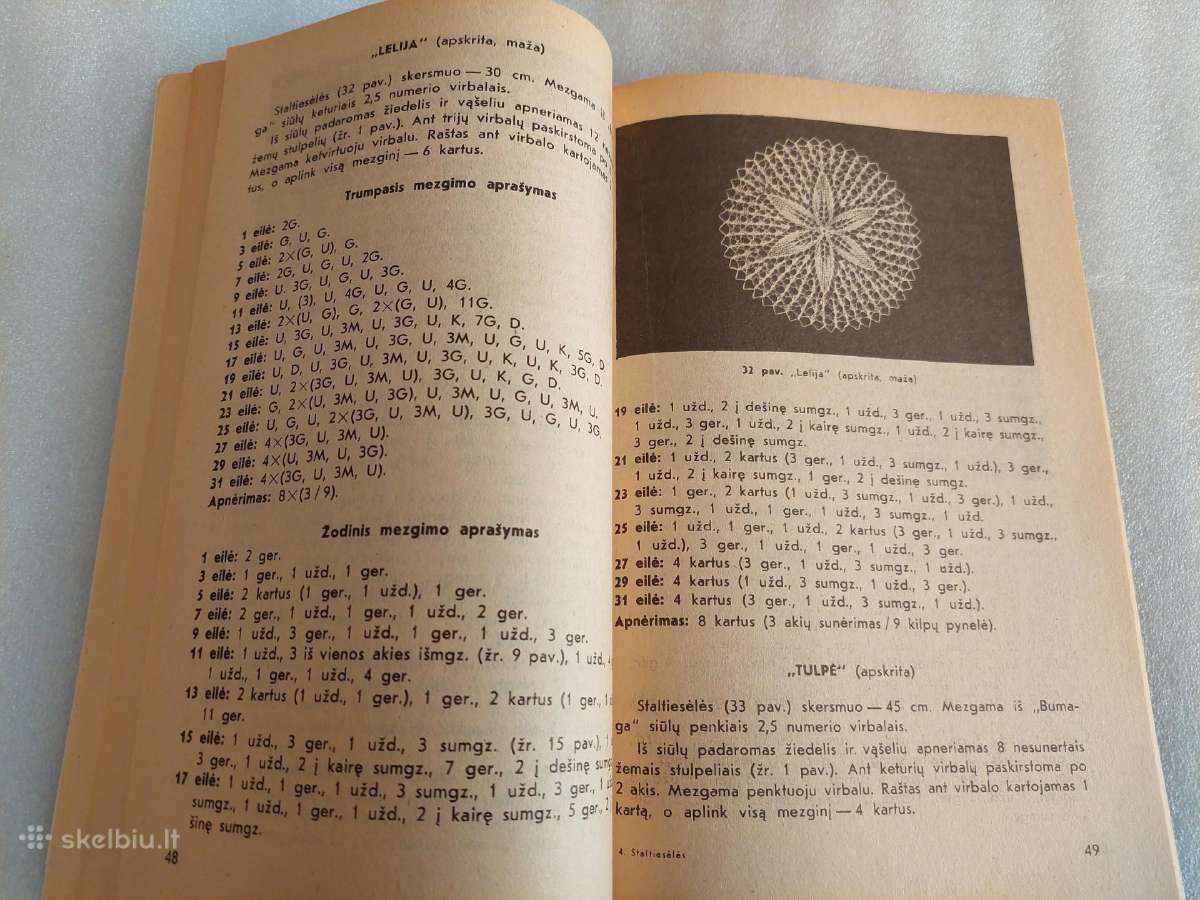 „LELIJA“ (apskrita, maža)
Staltiesėlės (32 pav.) skersmuo — 30 cm. Mezgama iš
ga“ siūlų keturiais 2,5 numerio virbalais.
Iš siūlų padaromas žiedelis ir vąšeliu apneriamas 12
žemų stulpelių (žr. 1 pav.). Ant trijų virbalų paskirstoma po
Mezgama ketvirtuoju virbalu. Raštas ant virbalo kartojamas
tus, o aplink visą mezginį — 6 kartus.
Trumpasis mezgimo aprašymas
1 eilė: 2G.
3 eilė: G, U, G.
5 eilė: 2×(G, U), G.
7 eilė: 2G, U, G, U, 2G.
9 eilė: U, 3G, U, G, U, 3G.
11 eilė: U, (3), U, 4G, U, G, U, 4G.
13 eilė: 2×(U, G), G, 2×(G, U), 11G.
15 eilė: U, 3G, U, 3M, U, 3G, U, K, 7G, D.
17 eilė: U, G, U, 3M, U, 3G, U, 3M, U, G, U, K, 5G, D
19 eilė: U, D, U, 3G, U, 3M, U, 3G, U, K, U, K, 3G, D.
21 eilė: U, 2×(3G, U, 3M, U), 3G, U, K, G, D.
23 eilė: G, 2×(U, 3M, U, 3G), U, 3M, U, G, U, 3M, U.
25 eilė: U, G, U, 2×(3G, U, 3M, U), 3G, U, G, U, 3G.
27 eilė: 4×(3G, U, 3M, U).
29 eilė: 4×(U, 3M, U, 3G).
31 eilė: 4×(3G, U, 3M, U).
Apnėrimas: 8×(3/9).
Žodinis mezgimo aprašymas
1 eilė: 2 ger.
3 eilė: 1 ger., 1 užd., 1 ger.
5 eilė: 2 kartus (1 ger., 1 užd.), 1 ger.
7 eilė: 2 ger., 1 užd., 1 ger., 1 užd., 2 ger.
9 eilė: 1 užd., 3 ger., 1 užd., 1 ger., 1 užd., 3 ger.
11 eilė: 1 užd., 3 iš vienos akies išmgz. (žr. 9 pav.), 1 užd.,
1 užd., 1 ger., 1 užd., 4 ger.
13 eilė: 2 kartus (1 užd., 1 ger.), 1 ger., 2 kartus (1 ger.,
11 ger.
15 eilė: 1 užd., 3 ger., 1 užd., 3 sumgz. (žr. 15 pav.),
3 ger., 1 užd., 2 į kairę sumgz., 7 ger., 2 į dešinę
17 eilė: 1 užd., 1 ger., 1 užd., 3 sumgz., 1 užd., 3 ger., 1
sumgz., 1 užd., 1 ger., 1 užd., 2 į kairę sumgz., 5 ger.,
šinę sumgz.
48
skelbiu.lt
32 pav. „Lelija“ (apskrita, maža)
19 eilė: 1 užd., 2 į dešinę sumgz., 1 užd., 3 ger., 1 užd., 3 sumgz.,
1 užd., 3 ger., 1 užd., 2 į kairę sumgz., 1 užd., 2 į kairę sumgz.,
3 ger., 2 į dešinę sumgz.
21 eilė: 1 užd., 2 kartus (3 ger., 1 užd., 3 sumgz., 1 užd.), 3 ger.,
1 užd., 2 į kairę sumgz., 1 ger., 2 į dešinę sumgz.
23 eilė: 1 ger., 2 kartus (1 užd., 3 sumgz., 1 užd., 3 ger.), 1 užd.,
3 sumgz., 1 užd., 1 ger., 1 užd., 3 sumgz., 1 užd.
25 eilė: 1 užd., 1 ger., 1 užd., 2 kartus (3 ger., 1 užd., 3 sumgz.,
1 užd.), 3 ger., 1 užd., 1 ger., 1 užd., 3 ger.
27 eilė: 4 kartus (3 ger., 1 užd., 3 sumgz., 1 užd.).
29 eilė: 4 kartus (1 užd., 3 sumgz., 1 užd., 3 ger.).
31 eilė: 4 kartus (3 ger., 1 užd., 3 sumgz., 1 užd.).
Apnėrimas: 8 kartus (3 akių sunėrimas/9 kilpų pynelė).
„TULPĖ“ (apskrita)
Staltiesėlės (33 pav.) skersmuo — 45 cm. Mezgama iš „Buma-
ga“ siūlų penkiais 2,5 numerio virbalais.
Iš siūlų padaromas žiedelis ir vąšeliu apneriamas 8 nesunertais
žemais stulpeliais (žr. 1 pav.). Ant keturių virbalų paskirstoma po
2 akis. Mezgama penktuoju virbalu. Raštas ant virbalo kartojamas 1
kartą, o aplink visą mezginį — 4 kartus.
4. Staltiesėlės
49